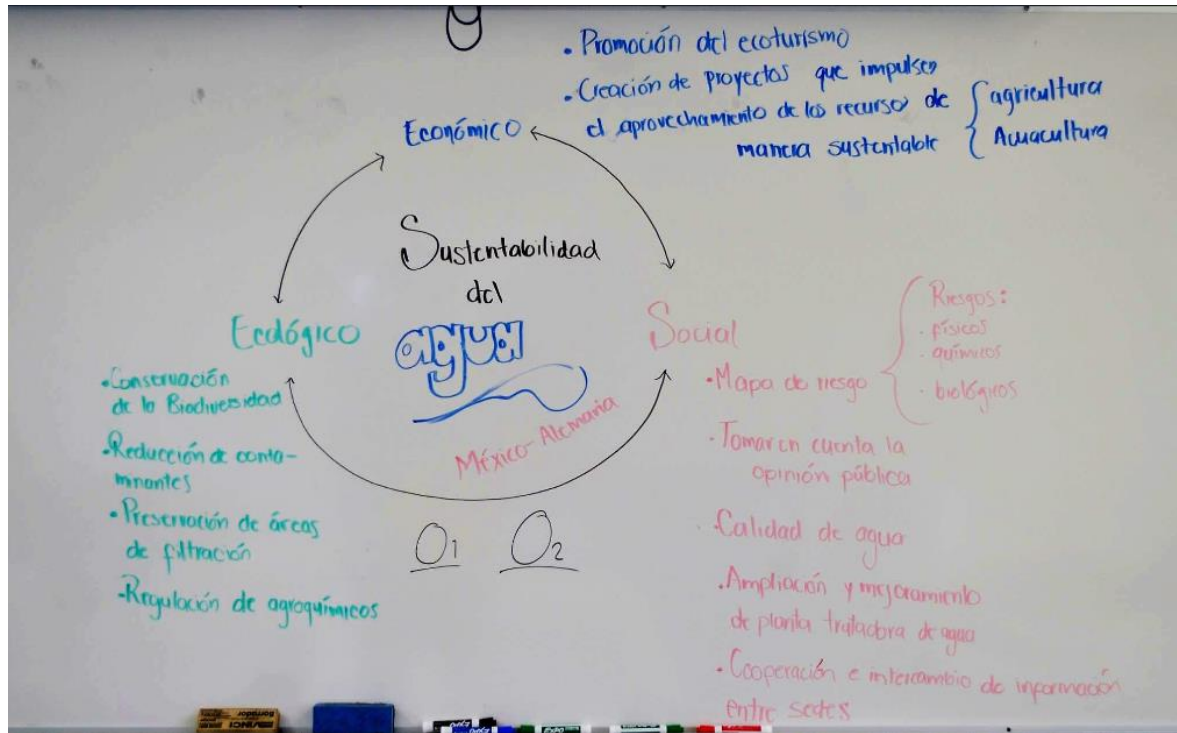 • Promoción del ecoturismo
• Creación de proyectos que impulsen
el aprovechamiento de los recursos de
manera sustentable
agricultura
Acuacultura
Económico
Sustentabilidad
del
agua
México-Alemania
Ecológico
• Conservación
de la Biodiversidad
• Reducción de conta-
minantes
• Preservación de áreas
de filtración
• Regulación de agroquímicos
Social
• Mapa de riesgo
Riesgos:
· físicos
· químicos
· biológicos
• Tomar en cuenta la
opinión pública
• Calidad de agua
• Ampliación y mejoramiento
de planta tratadora de agua
• Cooperación e intercambio de información
entre sedes
O1 O2
Borrador
EXPO